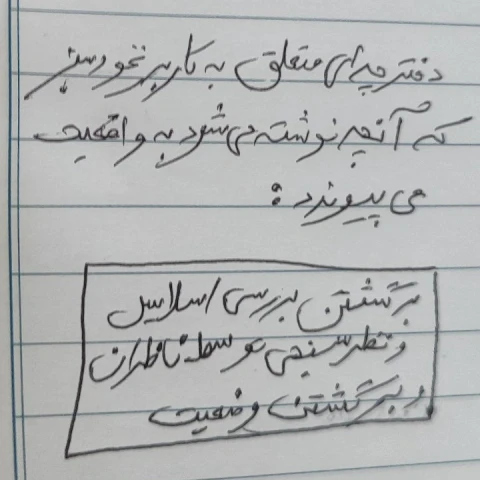 دفترچه‌ای متعلق به کاربر نخودسبز
که آنچه نوشته می‌شود به واقعیت
می پیوندد :
برگشتن بررسی اسلایس
و نظرسنجی توسط ناظران
و برگشتن وضعیت